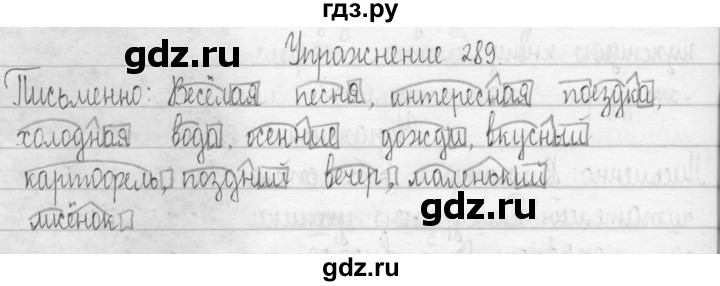 гдз.ру
gdz.ru
gdz.ru
Упражнение 289.
Письменно: Весёлая песня, интересная поездка,
холодная вода, осенние дожди, вкусный
картофель, поздний вечер, маленький
лисёнок.
gdz.ru
gdz.ru